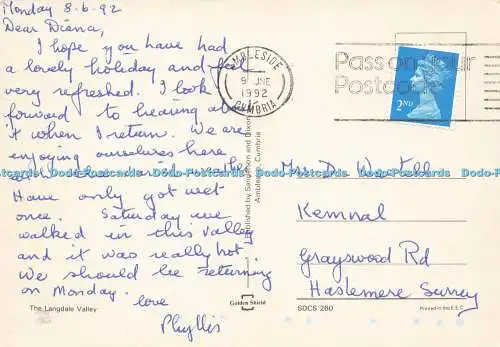 Monday 8.6.92
Dear Diana,
I hope you have had
a lovely holiday and feel
very refreshed. I look
forward to hearing about
it when I return. We are
enjoying ourselves here
Have only got wet
once. Saturday we
walked in this valley
and it was really hot
We should be returning
on Monday.
love
Phyllis
The Langdale Valley
Published by Sanderson and Dixon
Ambleside, Cumbria
Golden Shield
AMBLESIDE
9 JNE
1992
CUMBRIA
Pass on your
Postcode
2ND
Mrs D. Westell
Kemnal
Grayswood Rd
Haslemere Surrey
SDCS 280
Printed in the E.E.C.
Dodo-Postcards Dodo-Postcards Dodo-Postcards Dodo-Postcards Dodo-Postcards